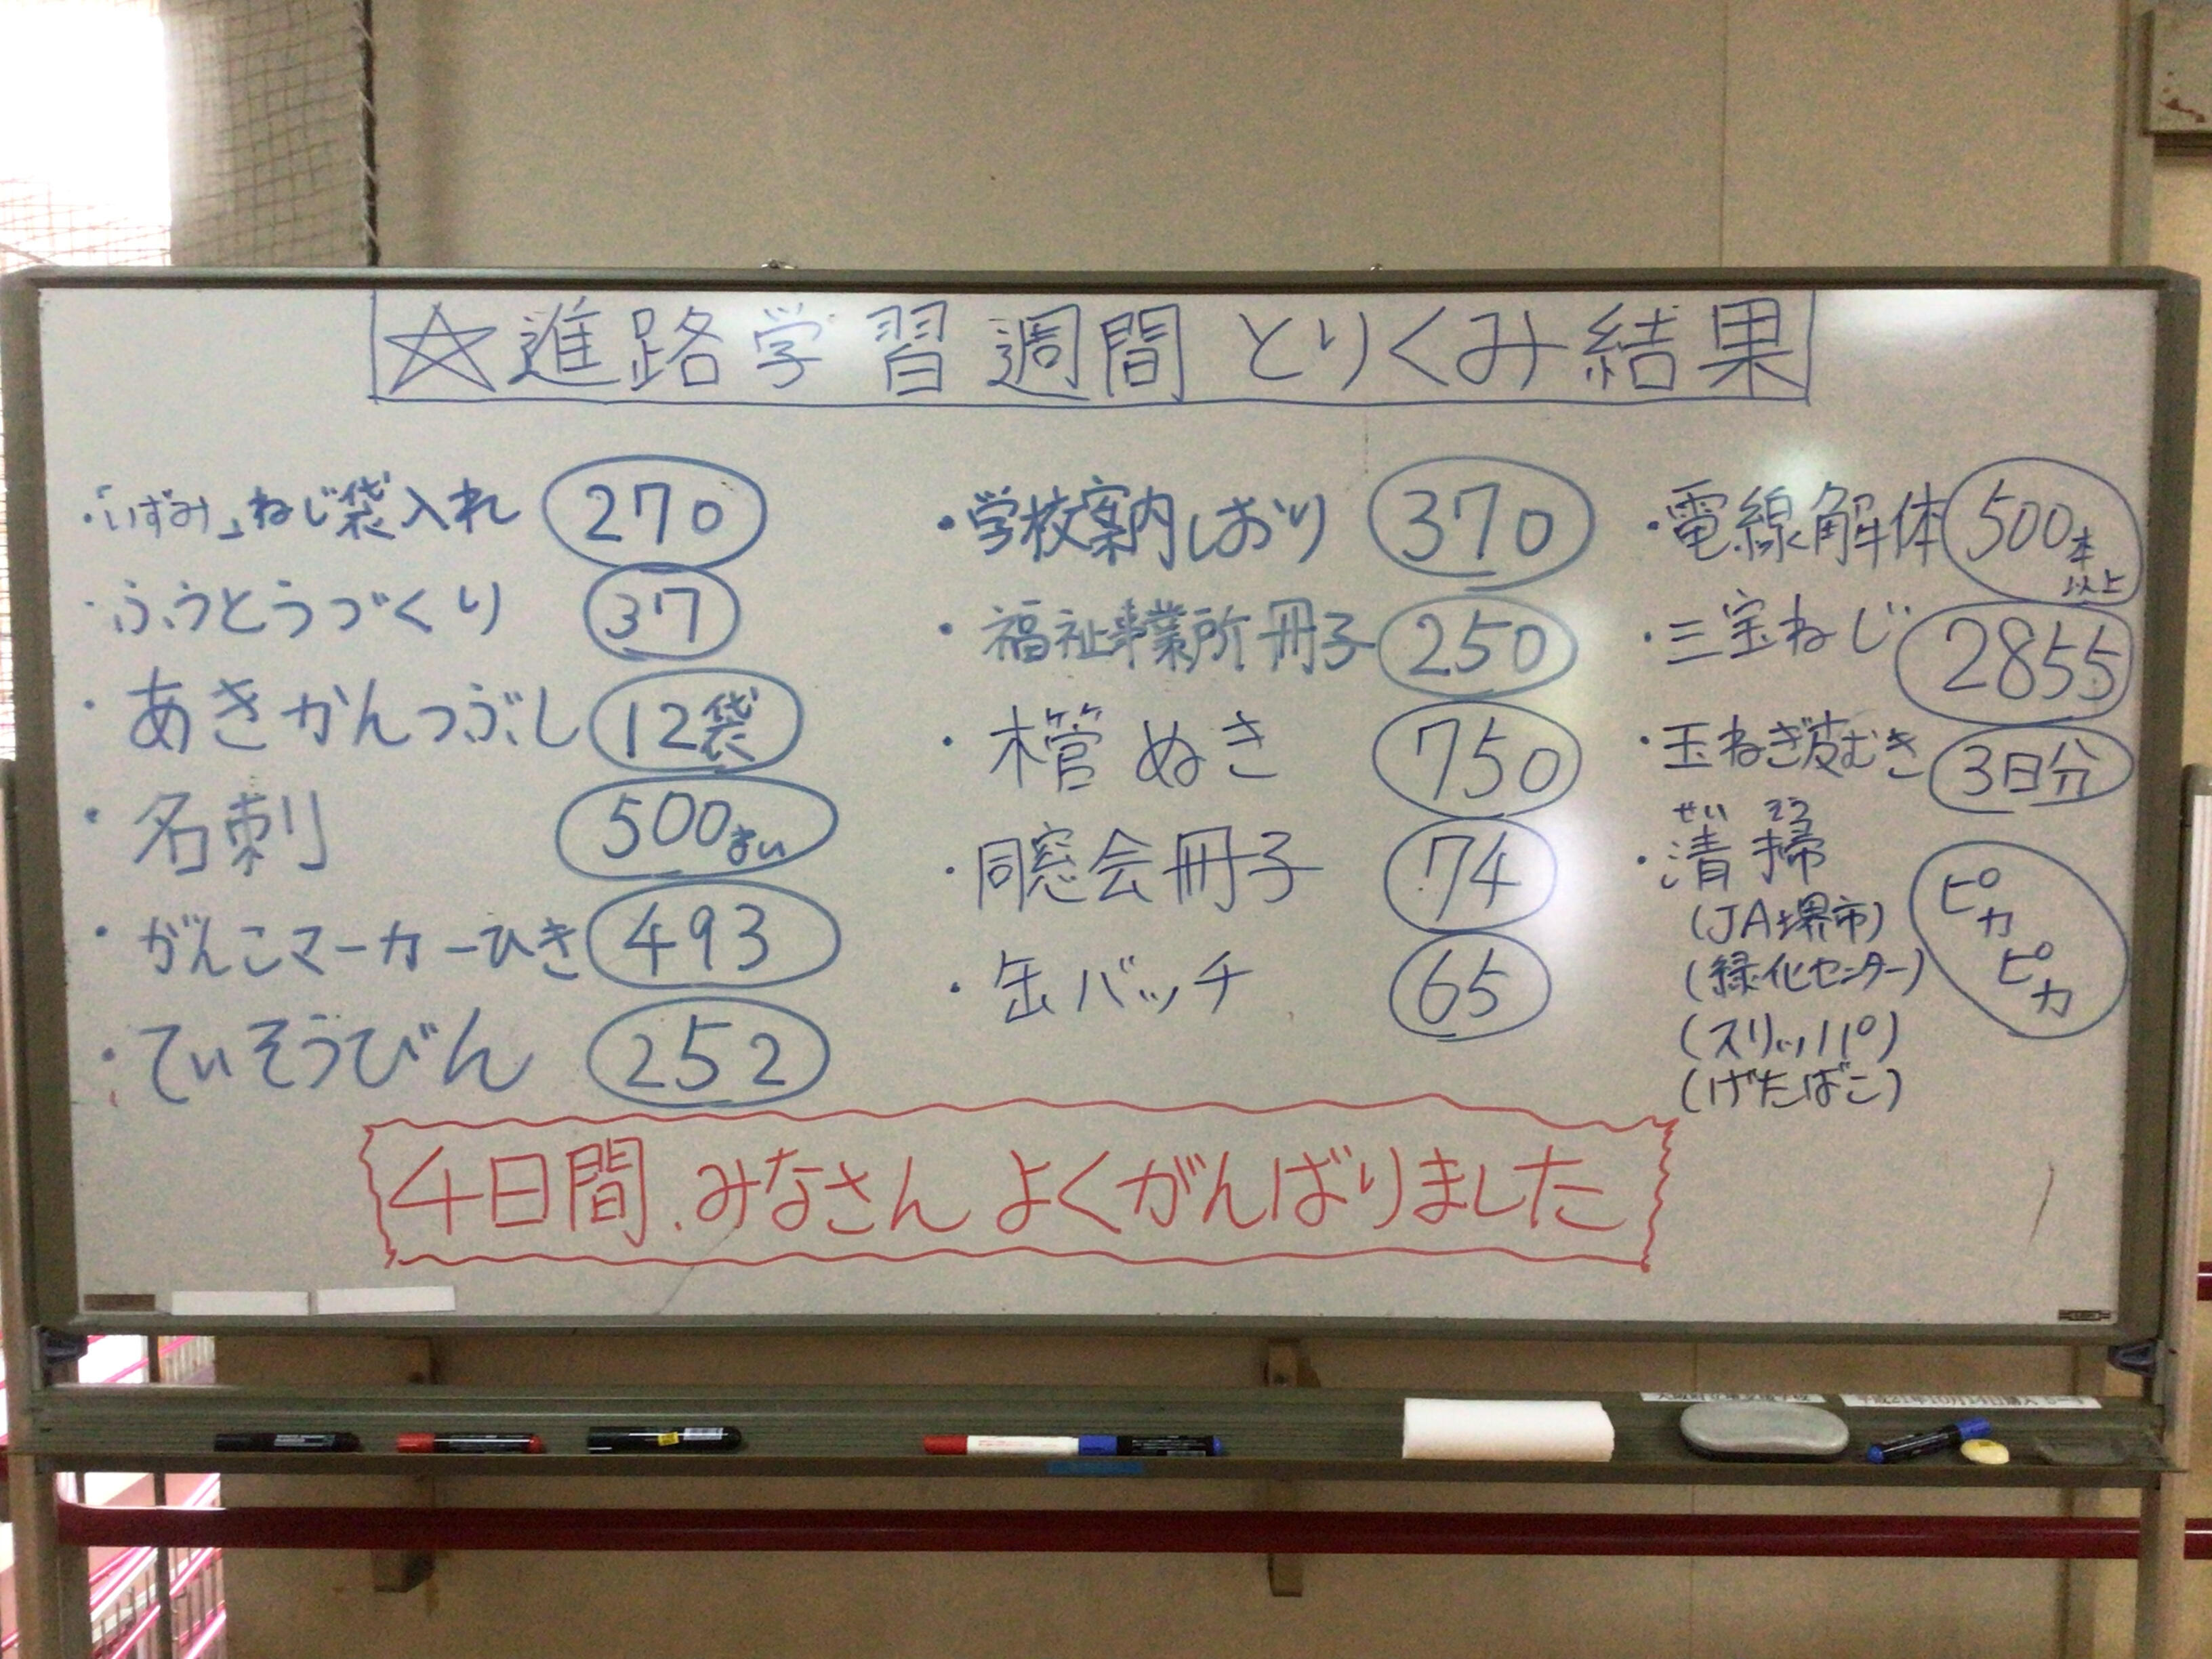 ☆進路学習週間 とりくみ結果
・「いずみ」ねじ袋入れ 270
・ふうとうづくり 37
・あきかんつぶし 12袋
・名刺 500まい
・がんこマーカーひき 493
・ていそうびん 252
・学校案内しおり 370
・福祉事業所冊子 250
・木管ぬき 750
・同窓会冊子 74
・缶バッチ 65
・電線解体 500本以上
・三宝ねじ 2855
・玉ねぎ皮むき 3日分
せいそう
・清掃 ピカピカ
(JA堺市)
(緑化センター)
(スリッパ)
(げたばこ)
4日間、みなさん よくがんばりました